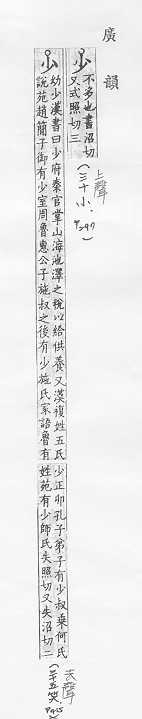 廣韻
少
不多也書沼切
又式照切三
(上聲
三十小,
P297)
少
幼少漢書曰少府秦官掌山海池澤之稅以給供養又漢複姓五氏
說苑趙簡子御有少室周魯惠公子施叔之後有少施氏家語魯有
少正卯孔子弟子有少叔乘何氏
姓苑有少師氏失照切又失沼切二
(去聲
三十五笑,